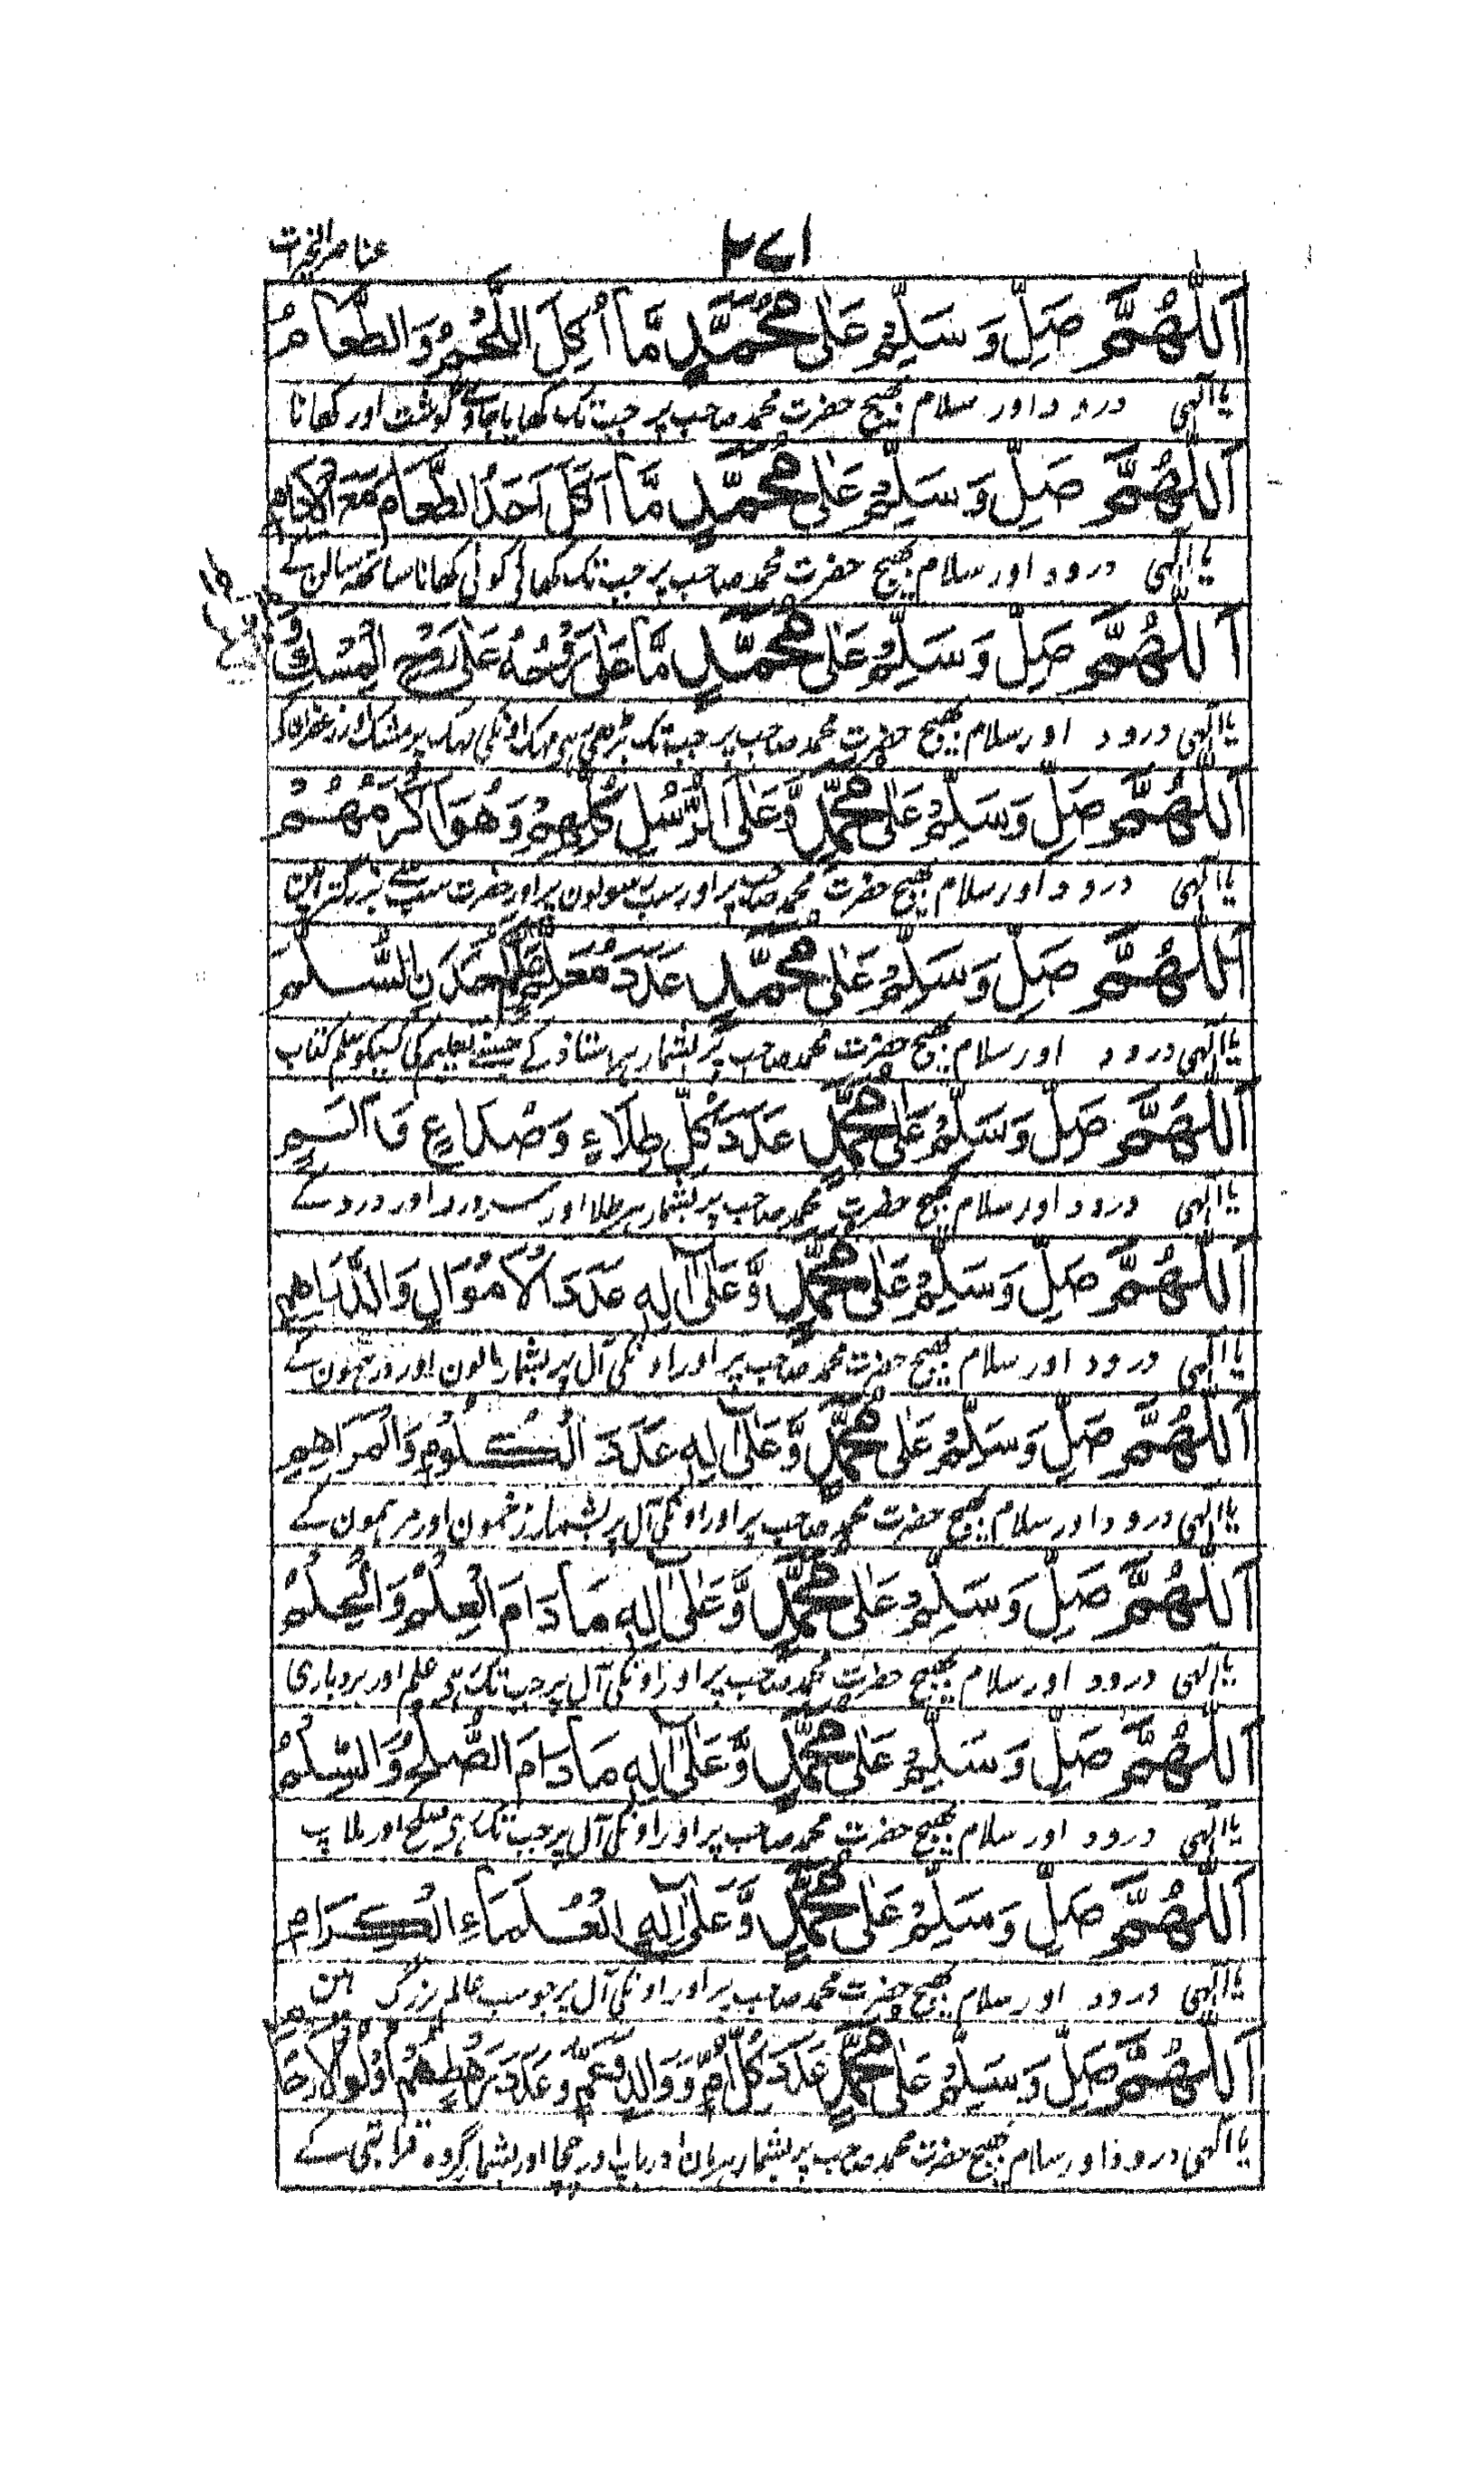 عناصر الخیرات
۲۷۱
اَللّٰهُمَّ صَلِّ وَسَلِّمْ عَلٰى مُحَمَّدٍ مَّا اُكِلَ اللَّحْمُ وَالطَّعَامُ
یا الٰہی درود اور سلام بھیج حضرت محمد صاحب پر جب تک کھایا جاوے گوشت اور کھانا
اَللّٰهُمَّ صَلِّ وَسَلِّمْ عَلٰى مُحَمَّدٍ مَّا اَكَلَ اَحَدُ الطَّعَامَ مَعَ الْاِدَامِ
یا الٰہی درود اور سلام بھیج حضرت محمد صاحب پر جب تک کھائی کوئی کھانا ساتھہ سالن کے
اَللّٰهُمَّ صَلِّ وَسَلِّمْ عَلٰى مُحَمَّدٍ مَّا عَلٰى رَوْحُهُ عَلٰى رَوْحِ الْمِسْكِ
یا الٰہی درود اور سلام بھیج حضرت محمد صاحب پر جب تک بڑھی رہی مہک اونکی مہک پر مشک اور زعفران کو
اَللّٰهُمَّ صَلِّ وَسَلِّمْ عَلٰى مُحَمَّدٍ وَّعَلَى الرُّسُلِ كُلِّهِمْ وَهُوَ اَكْرَمُهُمْ
یا الٰہی درود اور سلام بھیج حضرت محمد صاحب پر اور سب رسولون پر اور حضرت سب سے بزرگتر ہین
اَللّٰهُمَّ صَلِّ وَسَلِّمْ عَلٰى مُحَمَّدٍ عَدَدَ مُعَلِّمٍ السُّلَّمَ
یا الٰہی درود اور سلام بھیج حضرت محمد صاحب پر بشمار ہر استاذ کے جسنے تعلیم کی کسیکو سلم کتاب
اَللّٰهُمَّ صَلِّ وَسَلِّمْ عَلٰى مُحَمَّدٍ عَدَدَ كُلِّ طِلَاءٍ وَصُدَاعٍ
یا الٰہی درود اور سلام بھیج حضرت محمد صاحب پر بشمار ہر طلا اور اور درد کے
اَللّٰهُمَّ صَلِّ وَسَلِّمْ عَلٰى مُحَمَّدٍ وَّعَلٰى اٰلِهٖ عَدَدَ الْاَمْوَالِ وَالدَّرَاهِمِ
یا الٰہی درود اور سلام بھیج حضرت محمد صاحب پر اور اونکی آل پر بشمار مالون اور درہمون کے
اَللّٰهُمَّ صَلِّ وَسَلِّمْ عَلٰى مُحَمَّدٍ وَّعَلٰى اٰلِهٖ عَدَدَ الْكُلُوْمِ وَالْمَرَاهِمِ
یا الٰہی درود اور سلام بھیج حضرت محمد صاحب پر اور اونکی آل پر بشمار زخمون اور مرہمون کے
اَللّٰهُمَّ صَلِّ وَسَلِّمْ عَلٰى مُحَمَّدٍ وَّعَلٰى اٰلِهٖ مَا دَامَ الْعِلْمُ وَالْحِلْمُ
یا الٰہی درود اور سلام بھیج حضرت محمد صاحب پر اور اونکی آل پر جب تک رہی علم اور بردباری
اَللّٰهُمَّ صَلِّ وَسَلِّمْ عَلٰى مُحَمَّدٍ وَّعَلٰى اٰلِهٖ مَا دَامَ الصُّلْحُ وَالسِّلْمُ
یا الٰہی درود اور سلام بھیج حضرت محمد صاحب پر اور اونکی آل پر جب تک رہی صلح اور ملاپ
اَللّٰهُمَّ صَلِّ وَسَلِّمْ عَلٰى مُحَمَّدٍ وَّعَلٰى اٰلِهِ الْعُلَمَاءِ الْكِرَامِ
یا الٰہی درود اور سلام بھیج حضرت محمد صاحب پر اور اونکی آل پر جو سب عالم بزرگ ہین
اَللّٰهُمَّ صَلِّ وَسَلِّمْ عَلٰى مُحَمَّدٍ عَدَدَ كُلِّ اُمٍّ وَّوَالِدٍ وَّعَمٍّ وَّعَدَدَ رَهْطِهُمْ اُولُو الْاَرْحَامِ
یا الٰہی درود اور سلام بھیج حضرت محمد صاحب پر بشمار ہر مان اور باپ اور چچا اور بشمار گروہ قرابتی کے